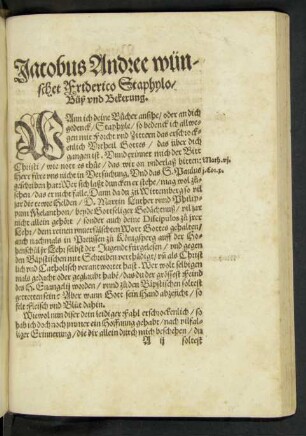 Jacobus Andree wün-
schet Friderico Staphylo/
Büß vnd Bekerung.
WAnn ich deine Bücher ansihe/ oder an dich
gedenck/ Staphyle/ so bedenck ich allwe-
gen mit Forcht vnd Zittern das erschrock-
enlich Vrtheil Gottes/ das vber dich
gangen ist. Vnnd erinnert mich der Bitt
Christi/ wie not es thüe/ das wir on vnderlaß bitten:
Matth. vj.
Herr füre vns nicht in Versuchung. Vnd das S. Paulus
geschriben hat: Wer sich laßt duncken er stehe/ mag wol zů-
sehen/ das er nicht falle. Dann da du zů Wittenberg so vil
jar die tewre Helden/ D. Martin Luther vnnd Philip-
pum Melanthon/ beyde Gottseliger Gedächtnuß/ nit
nicht allein gehört/ sonder auch deine Discipulos zů jrer
Lehr/ dem reinen vnuerfälschten Wort Gottes gehalten/
auch nachmals in Preussen zů Königsperg auff der Ho-
henschůl jr Lehr selbst der Jugendt fürgelesen/ vnd gegen
den Bäpstischen mit Schreiben verthädigt/ vñ als Christ-
lich vnd Catholisch verantwortet hast. Wer wolt selbigen
mals gedacht oder geglaubt habẽ/ das du der gestalt Feind
des H. Euangelij worden/ vnnd zů den Bäpstischen soltest
getretten sein: Aber wann Gott sein Hand abzeicht/ so
felt Fleisch vnd Blůt dahin.
Wiewol nun diser dein leidiger Fahl erschrockenlich/ so
hab ich doch noch jmmer ein Hoffnung gehabt/ nach vilfal-
tiger Erinnerung/ die dir allein durch mich beschehen/ du
A ij
soltest